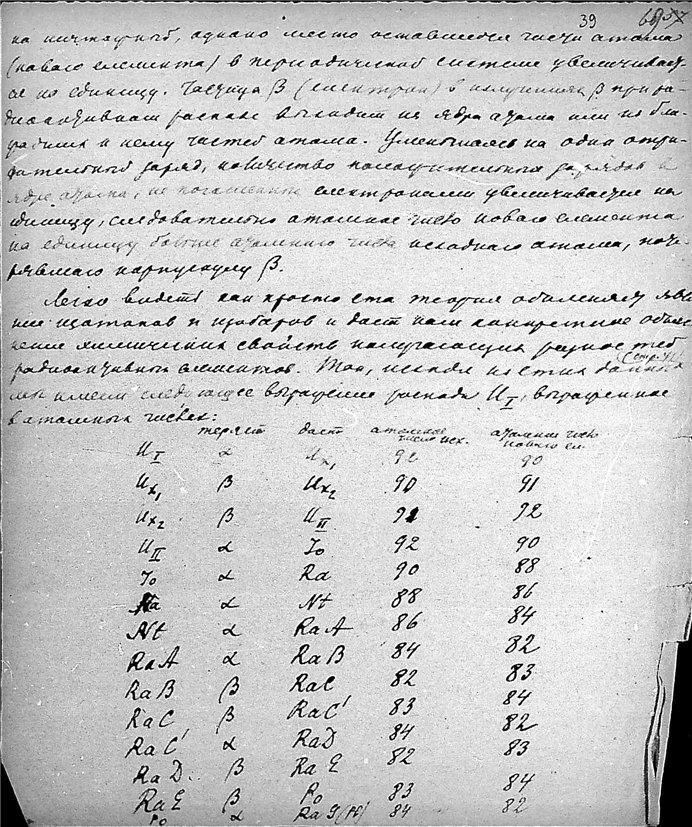 39
но ничтожный, однако место оставшейся части атома
(нового элемента) в периодической системе увеличивает-
ся на единицу. Частица β (электрон) в излучениях β при ра-
диоактивном распаде выходит из ядра атома или из бли-
к нему частей атома. Уменьшаясь на один отри-
цательный заряд, количество положительных зарядов в
ядре атома, не погашенных електронами увеличивается на
единицу, следовательно атомное число нового елемента
на единицу больше атомного числа исходного атома, поте-
рявшего корпускулу β.
Легко видеть как просто эта теория объясняет явле
ние изотопов и изобаров и дает нам конкретное объяс
нение химических свойств получающихся разное тел
радиоактивных елементов. Так, исходя из этих данных (стр.
мы имеем следующее выражение распада U I, выраженное
в атомных числах:
теряет дает атомное число исх. атомное число нового ел.
U I α Ux₁ 92 90
Ux₁ β Ux₂ 90 91
Ux₂ β U II 91 92
U II α Jo 92 90
Jo α Ra 90 88
Ra α Nt 88 86
Nt α RaA 86 84
RaA α RaB 84 82
RaB β RaC 82 83
RaC β RaC' 83 84
RaC' α RaD 84 82
RaD β RaE 82 83
RaE β Po 83 84
Po α RaG 84 82